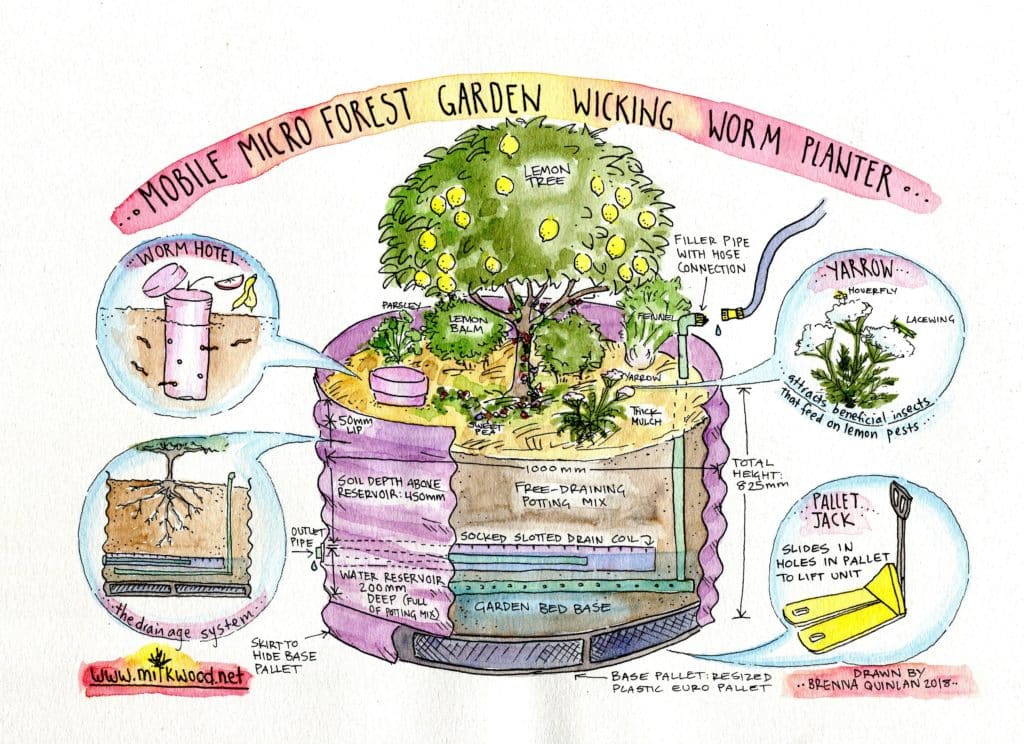 ...MOBILE MICRO FOREST GARDEN WICKING WORM PLANTER...
WORM HOTEL
LEMON
TREE
FILLER PIPE
WITH HOSE
CONNECTION
YARROW
HOVERFLY
LACEWING
attracts beneficial insects
that feed on lemon pests...
PARSLEY
LEMON
BALM
FENNEL
YARROW
SWEET
PEA
THICK
MULCH
50mm
LIP
1000mm
TOTAL
HEIGHT:
825mm
SOIL DEPTH ABOVE
RESERVOIR: 450mm
FREE-DRAINING
POTTING MIX
OUTLET
PIPE
SOCKED SLOTTED DRAIN COIL
WATER RESERVOIR
200mm
DEEP (FULL
OF POTTING MIX)
GARDEN BED BASE
the drainage system
PALLET
JACK
SLIDES IN
HOLES IN PALLET
TO LIFT UNIT
SKIRT TO
HIDE BASE
PALLET
BASE PALLET: RESIZED
PLASTIC EURO PALLET
www.milkwood.net
DRAWN BY
..BRENNA QUINLAN 2018..